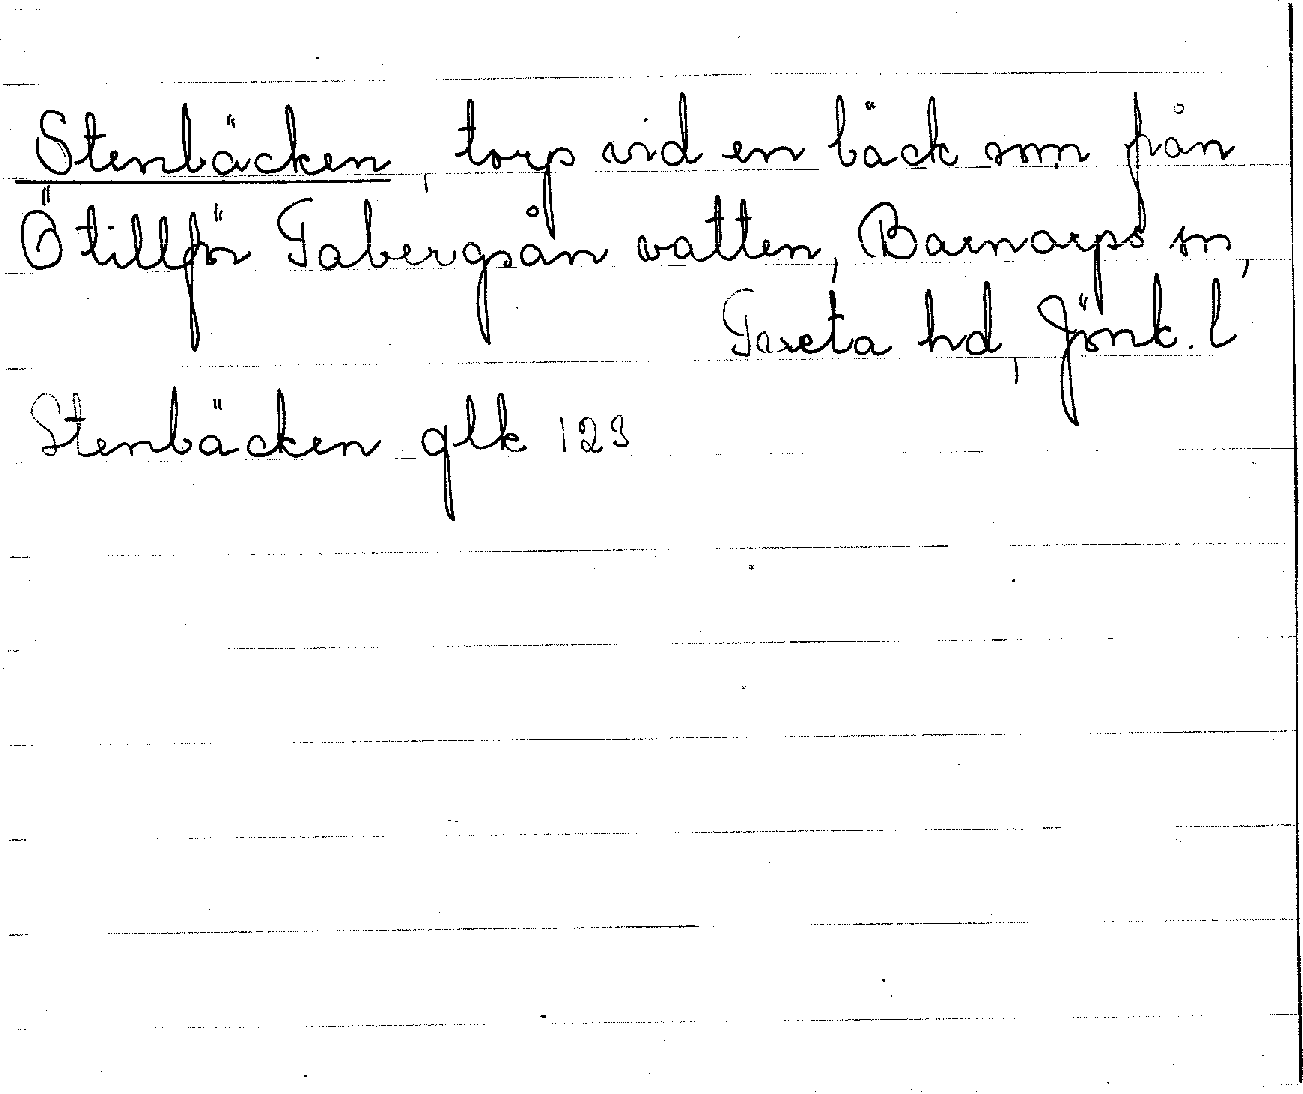 Stenbäcken, torp vid en bäck som från
Ö tillför Tabergsån vatten, Barnarps sn,
Tveta hd, Jönk. l
Stenbäcken glk 123